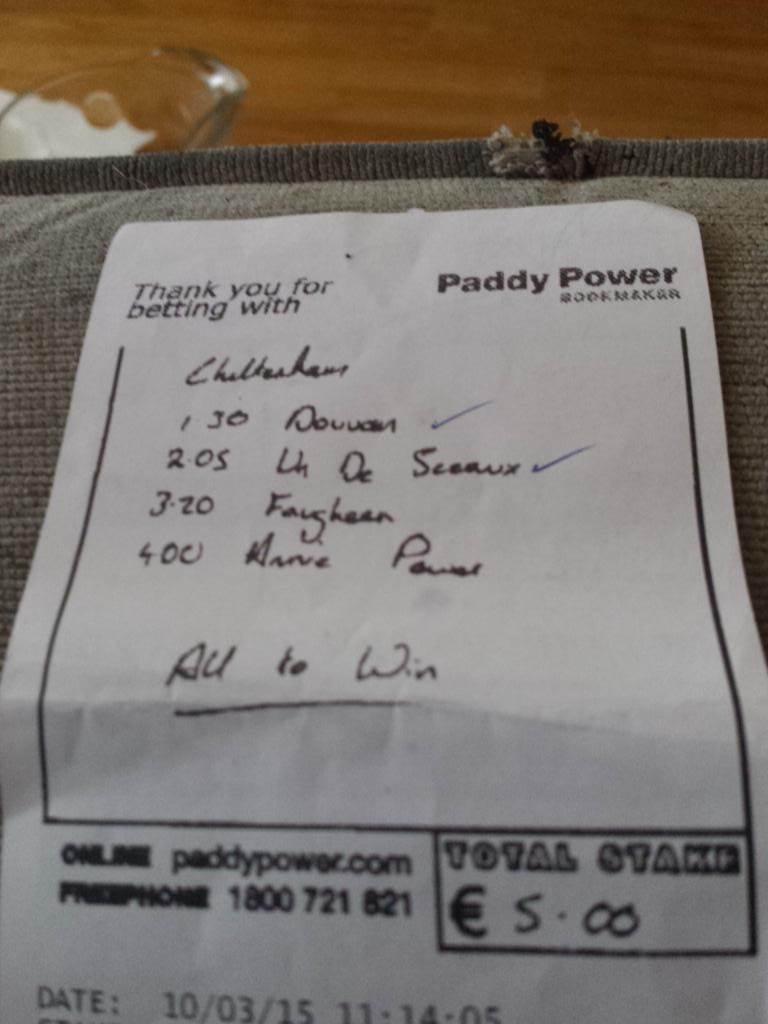 Thank you for
betting with
Paddy Power
BOOKMAKER
Cheltenham
1.30 Douvan
2.05 Un De Sceaux
3.20 Faugheen
4.00 Annie Power
All to Win
ONLINE paddypower.com
FREEPHONE 1800 721 821
TOTAL STAKE
€ 5.00
DATE: 10/03/15 11:14:05